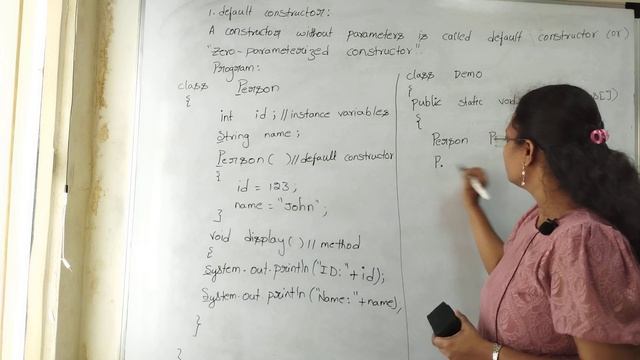 1. default constructor:
A constructor without parameters is called default constructor (or)
"zero-parameterized constructor".
Program:
class Person
{
int id; //instance variables
String name;
Person( ) //default constructor
{
id = 123;
name = "John";
}
void display( ) //method
{
System.out.println("ID:"+id);
System.out.println("Name:"+name),
}
}
class Demo
{
public static
{
Person P=
P.